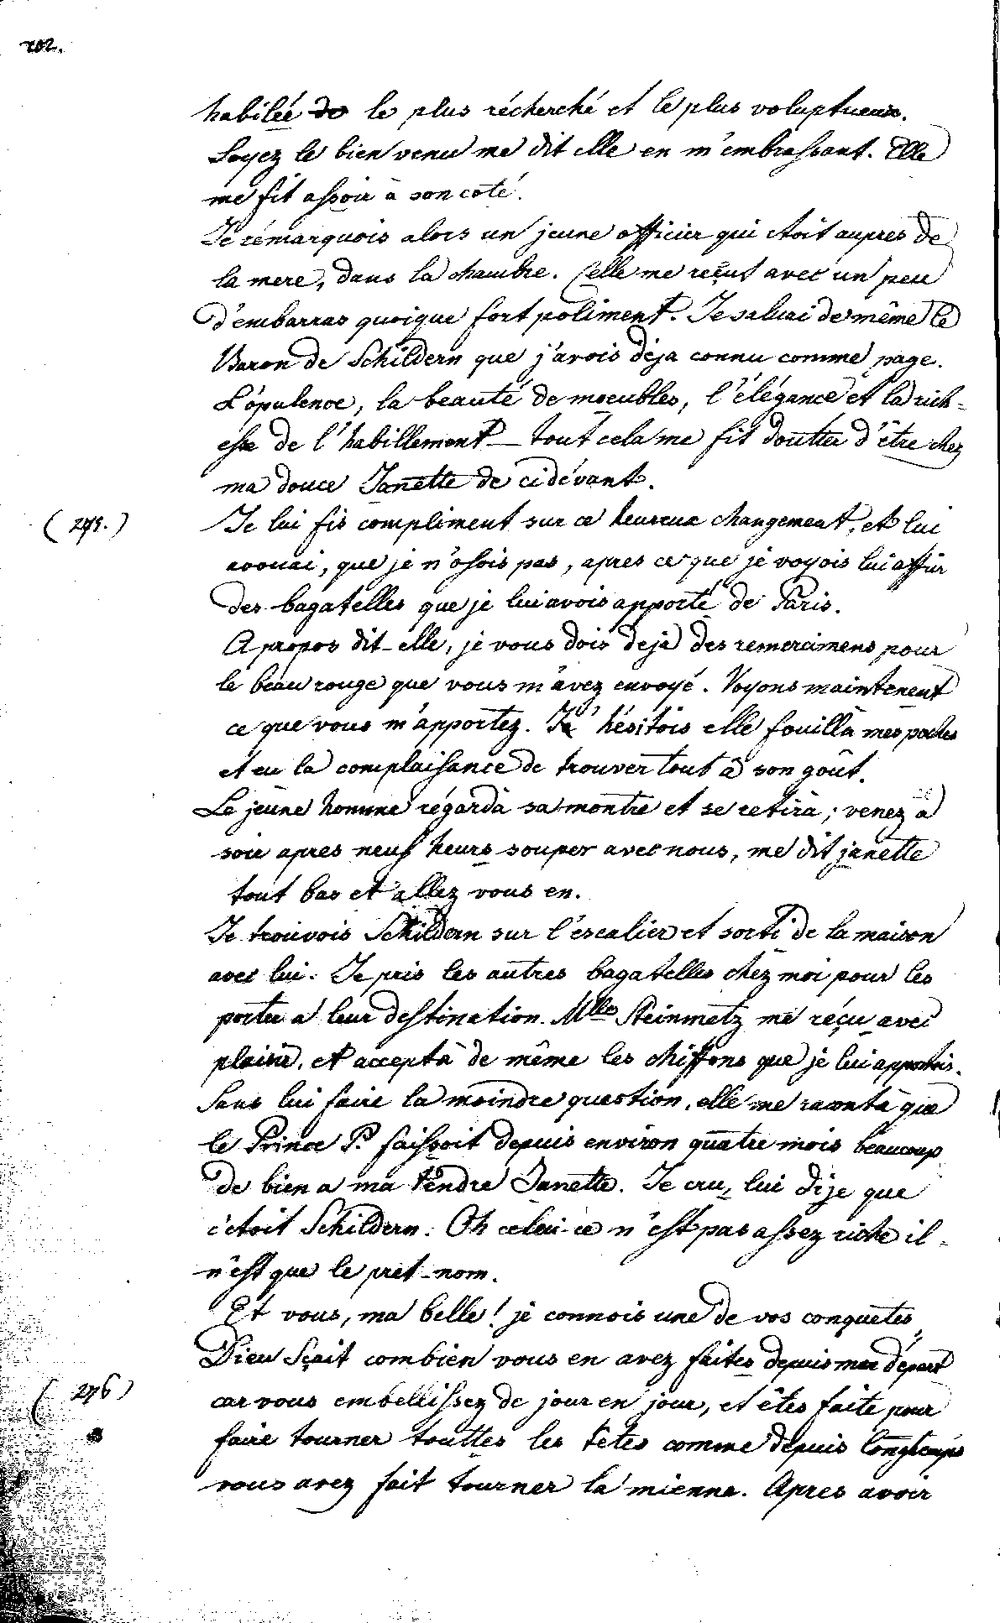 202.
habilée de le plus récherché et le plus voluptueux.
Soyez le bien venu me dit elle en m'embrassant. Elle
me fit assoir à son coté.
Je rémarquois alors un jeune officier qui étoit aupres de
la mere, dans la chambre. Celle me reçut avec un peu
d'embarras quoique fort poliment. Je saluai de même le
Baron de Schildern que j'avois déja connu comme page.
L'opulence, la beauté de moeubles, l'élégance et la rich-
esse de l'habillement – tout cela me fit doutter d'être chez
ma douce Janette de cidévant.
(275.)
Je lui fis compliment sur ce heureux changement, et lui
avouai, que je n'osois pas, apres ce que je voyois lui offrir
des bagatelles que je lui avois apporté de Paris.
A propos dit-elle, je vous dois deja des remercimens pour
le beau rouge que vous m'avez envoyé. Voyons maintenent
ce que vous m'apportez. J' hésitois elle fouilla mes poches
et eu la complaisance de trouver tout à son goût.
Le jeune homme régarda sa montre et se retira; venez a
soir apres neuf heurs souper avec nous, me dit janette
tout bas et allez vous en.
Je trouvois Schildern sur l'escalier et sorti de la maison
avec lui. Je pris les autres bagatelles chez moi pour les
porter a leur destination. Mlle Steinmetz me réçu avec
plaisir, et accepta de même les chiffons que je lui apportois.
Sans lui faire la moindre question, elle me raconta que
le Prince P. faissoit depuis environ quatre mois beaucoup
de bien a ma tendre Janette. Je cru, lui dije que
c'étoit Schildern. Oh celui-ce n'est pas assez riche il
n'est que le pret-nom.
Et vous, ma belle! je connois une de vos conquetes,
Dieu sçait combien vous en avez faites depuis mon départ
(276)
car vous embellissez de jour en jour, et êtes faite pour
faire tourner touttes les têtes comme depuis longtemps
vous avez fait tourner la mienne. Apres avoir